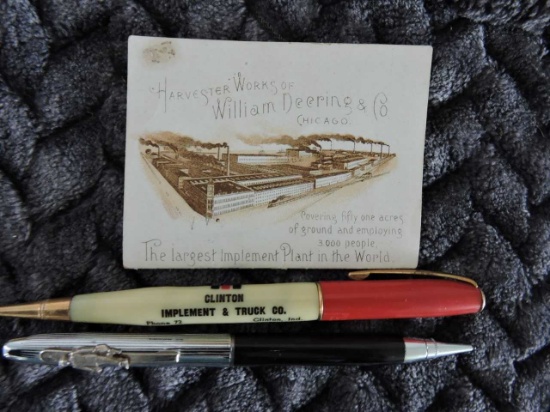 "Harvester" Works of
William Deering & Co
Chicago.
Covering fifty one acres
of ground and employing
3000 people.
The largest Implement Plant in the World.
CLINTON
IMPLEMENT & TRUCK CO.
Phone 72 Clinton, Ind.